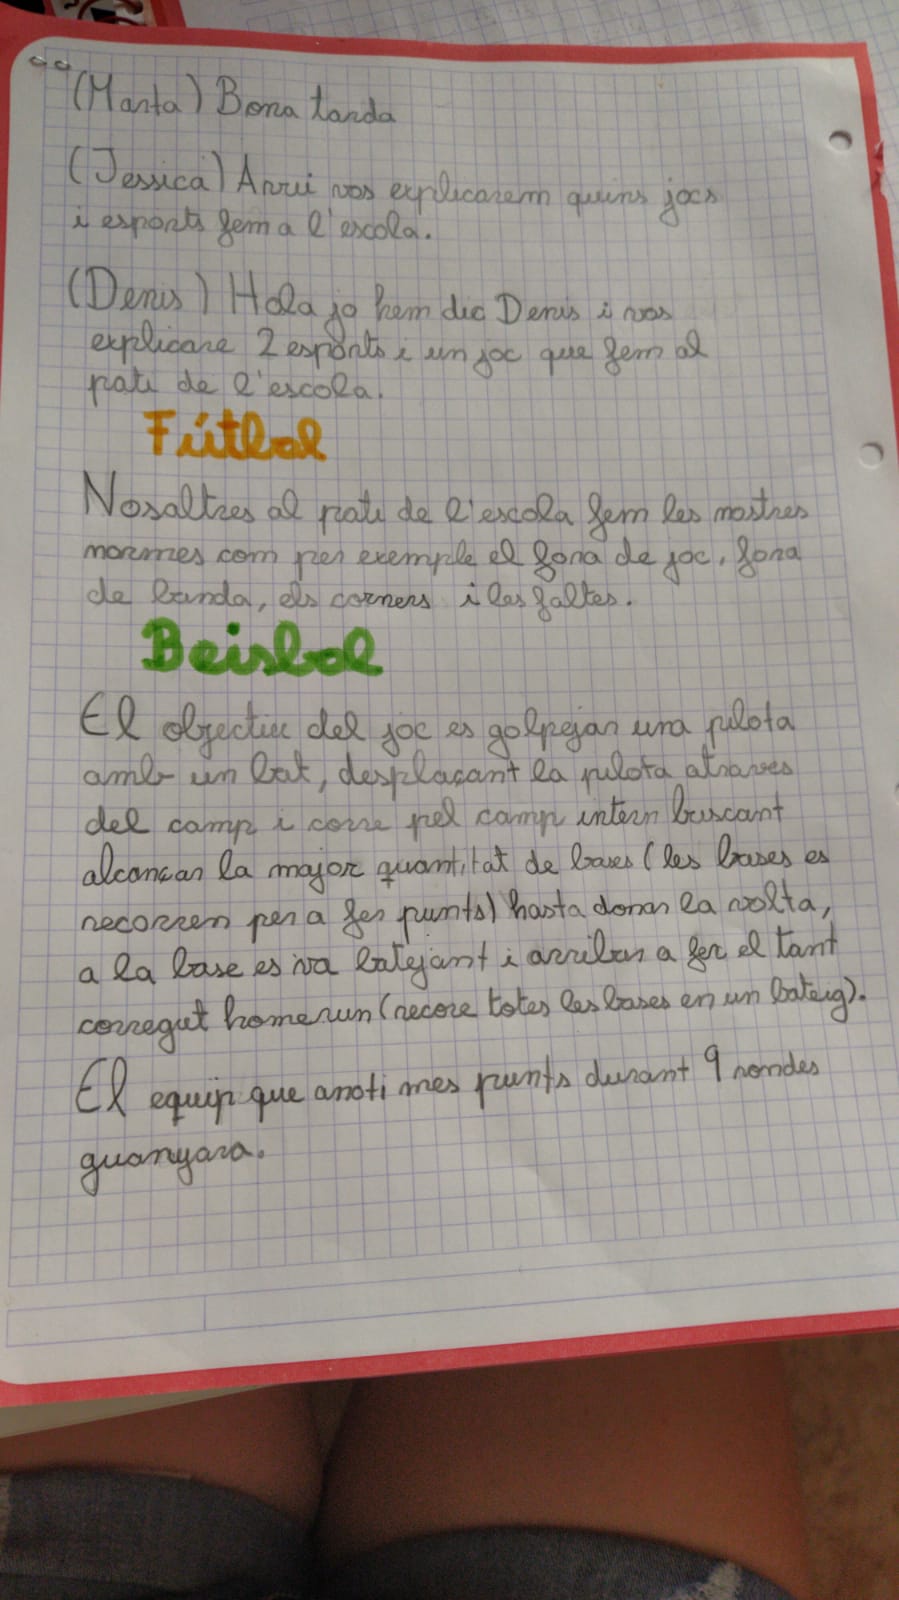 (Marta) Bona tarda
(Jessica) Avui vos explicarem quins jocs
i esports fem a l'escola.
(Denis) Hola jo hem dic Denis i vos
explicare 2 esports i un joc que fem al
pati de l'escola.
Fútbol
Nosaltres al pati de l'escola fem les nostres
normes com per exemple el fora de joc, fora
de banda, els corners i les faltes.
Beisbol
El objectiu del joc es golpejar una pilota
amb un bat, desplaçant la pilota atraves
del camp i corre pel camp intern buscant
alcançar la major quantitat de bases (les bases es
recorren per a fer punts) hasta donar la volta,
a la base es va batejant i arribar a fer el tant
corregut home run (recore totes les bases en un bateig).
El equip que anoti mes punts durant 9 rondes
guanyara.